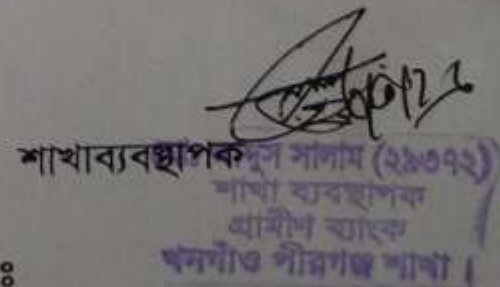 শাখাব্যবস্থাপক
দুস সালাম (২৯৩৭২)
শাখা ব্যবস্থাপক
গ্রামীণ ব্যাংক
খনগাঁও পীরগঞ্জ শাখা।